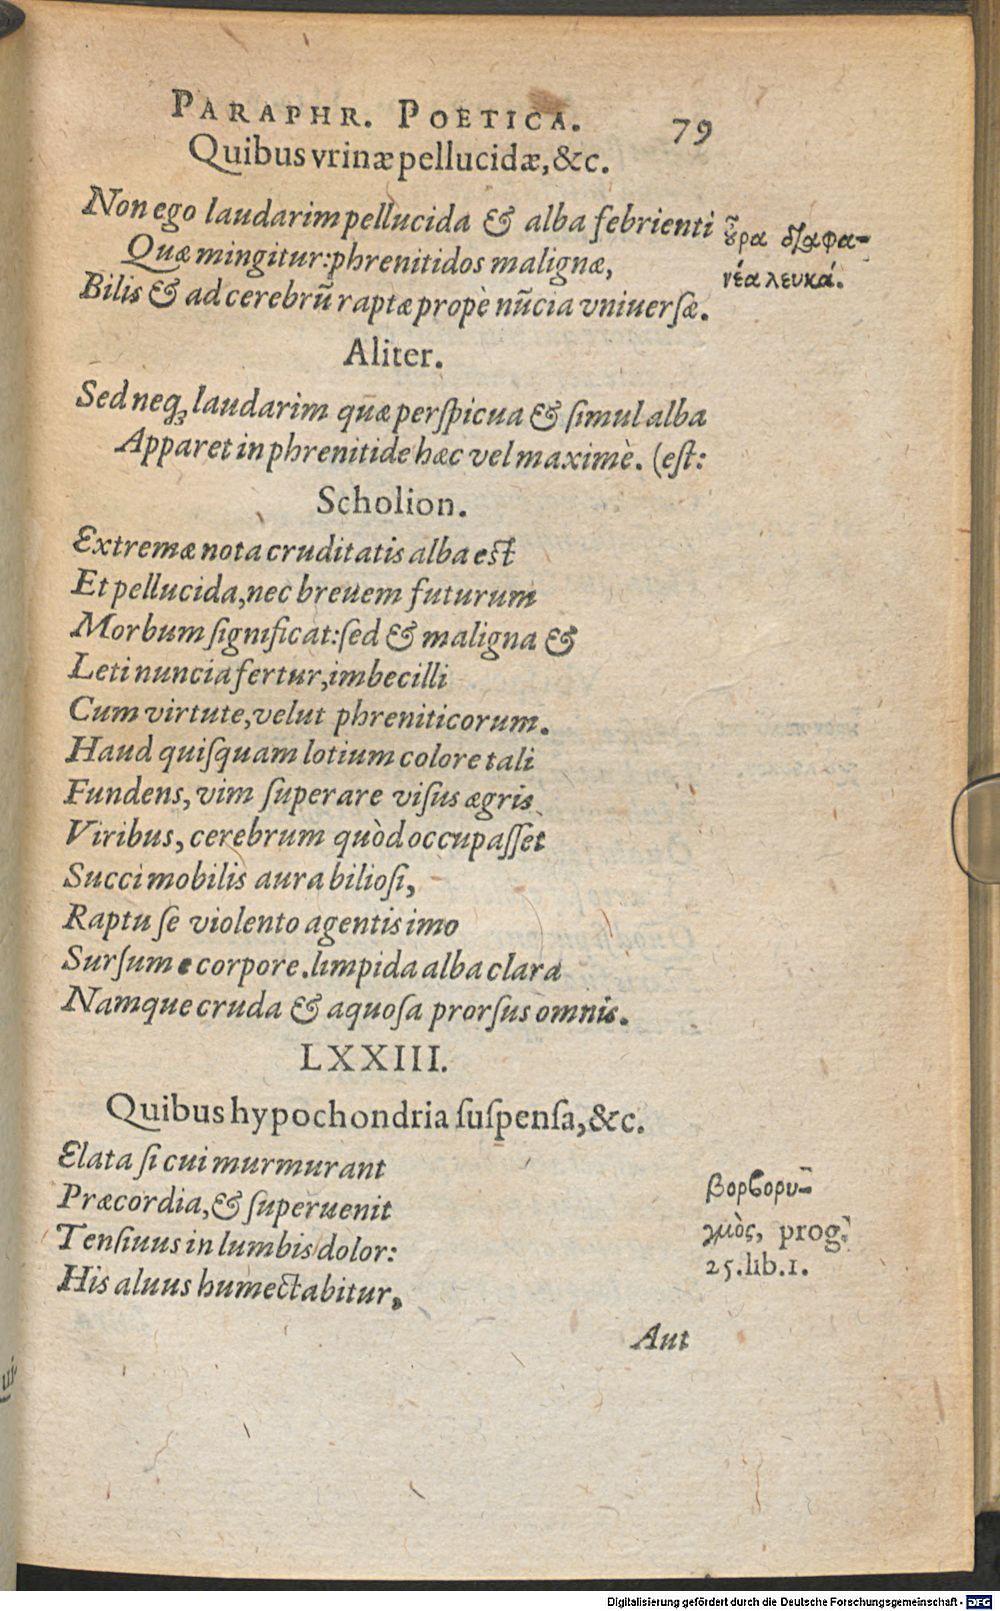 PARAPHR. POETICA. 79
Quibus vrinæ pellucidæ, &c.
Non ego laudarim pellucida & alba febrienti
Quæ mingitur: phrenitidos malignæ,
Bilis & ad cerebrũ raptæ propè nũcia vniuersæ.
ȣ̃ρα διαφα-
νέα λευκά.
Aliter.
Sed neq; laudarim quæ perſpicua & ſimul alba
Apparet in phrenitide hæc vel maximè. (eſt:
Scholion.
Extremæ nota cruditatis alba eſt
Et pellucida, nec breuem futurum
Morbum ſignificat: ſed & maligna &
Leti nuncia fertur, imbecilli
Cum virtute, velut phreniticorum.
Haud quiſquam lotium colore tali
Fundens, vim ſuperare viſus ægris
Viribus, cerebrum quòd occupaſſet
Succi mobilis aura bilioſi,
Raptu ſe violento agentis imo
Surſum e corpore. limpida alba clara
Namque cruda & aquoſa prorſus omnis.
LXXIII.
Quibus hypochondria ſuſpenſa, &c.
Elata ſi cui murmurant
Præcordia, & ſuperuenit
Tenſiuus in lumbis dolor:
His aluus humectabitur,
βορϐορυ-
γμὸς, prog.
25. lib. 1.
Aut
ui-
Digitalisierung gefördert durch die Deutsche Forschungsgemeinschaft - DFG